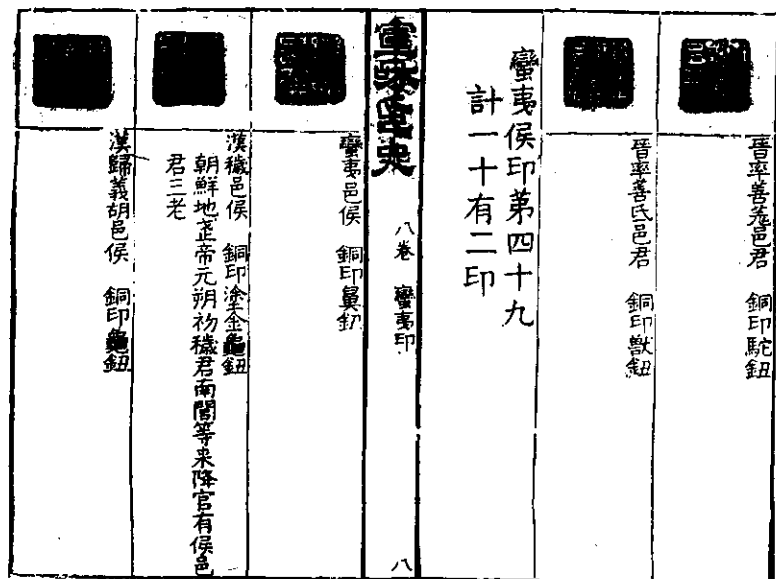 晉率善羌邑君　銅印駝鈕
晉率善氐邑君　銅印獸鈕
蠻夷侯印第四十九
計一十有二印
八卷　蠻夷印
八
蠻夷邑侯　銅印鼻鈕
漢穢邑侯　銅印塗金龜鈕
朝鮮地武帝元朔初穢君南閭等来降官有侯邑
君三老
漢歸義胡邑侯　銅印龜鈕